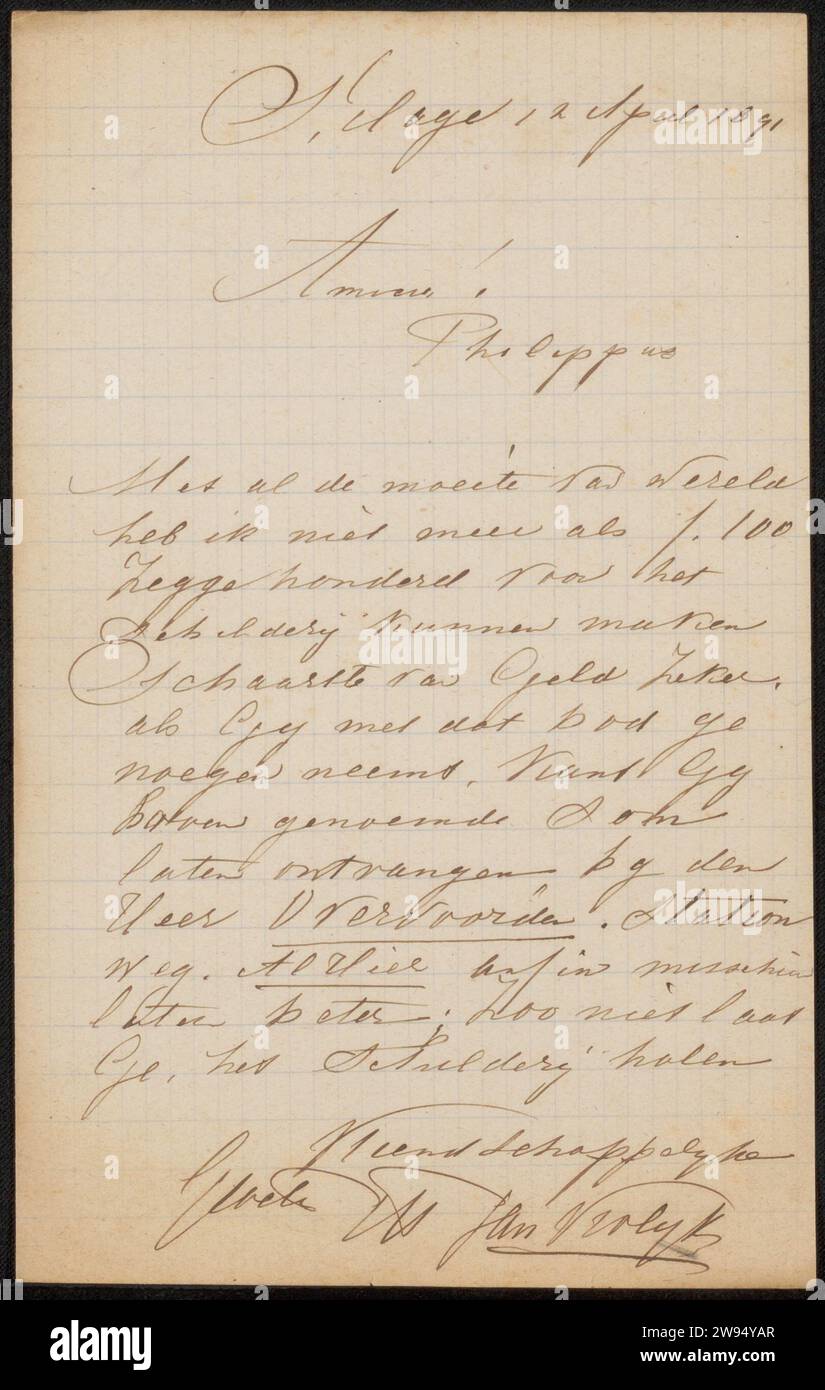 S'Hage 12 April 1891
Amice!
Philippus
Met al de moeite van wereld
heb ik niet meer als f. 100
Zegge honderd voor het
schilderij kunnen maken
Schaarste van Geld zeker.
als Gy met dat bod ge
noegen neemt, kunt Gy
boven genoemde som
laten ontvangen by den
Heer Overvoorden. Station
weg. Alhier enfin misschien
later beter; zoo niet laat
Ge, het Schilderij halen
Vriendschappelyke
Groete tt Jan Vrolyk
alamy
www.alamy.com
2W94YAR